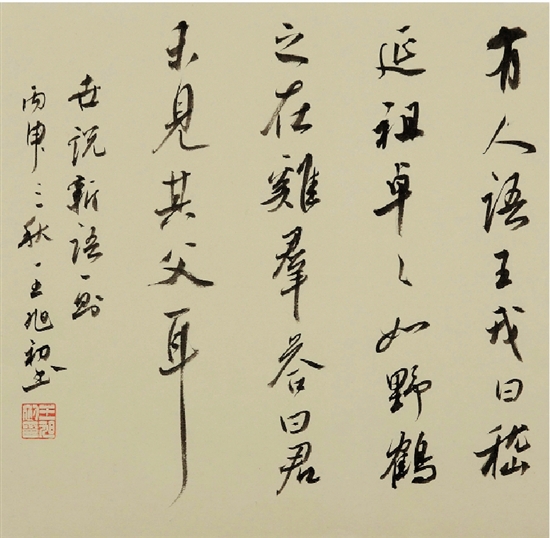 有人語王戎曰嵇
延祖卓〻如野鶴
之在雞羣答曰君
未見其父耳
世説新語一則
丙申之秋王旭初書